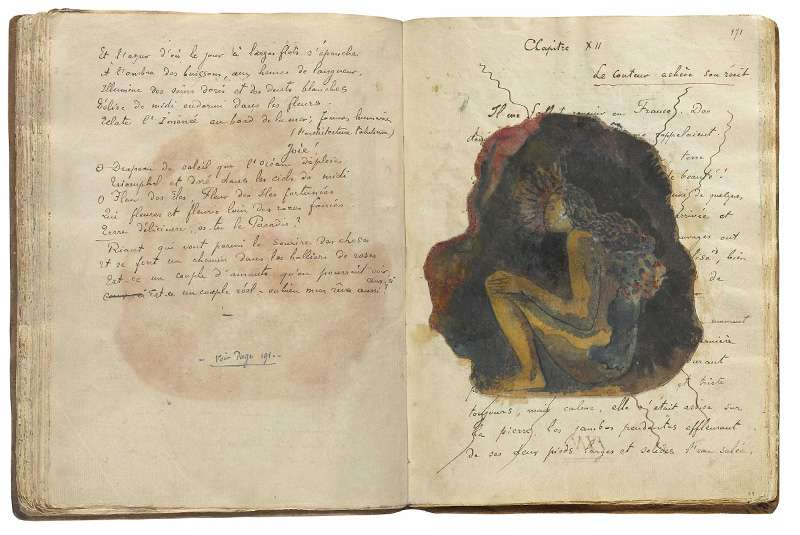 Et l'azur d'où le jour à larges flots s'épanche
A l'ombre des buissons, aux heures de langueur,
Illumine des seins dorés et des dents blanches
de midi endormi dans les fleurs.
au bord de la mer,
Joie!
O Drapeau de soleil que l'Océan déploie
Triomphal et doré dans les ciels de midi
O Fleur des îles, Fleur des îles fortunées
Qui fleures et fleuris loin des races fanées
Terre délicieuse, es-tu le Paradis?
Riant qui vont parmi le sourire des choses
Et se font un chemin dans les halliers de roses
Est-ce un couple d'amants qu'on pourrait voir
Est-ce un couple réel - ou bien mon rêve aussi?
- Voir Page 191 -
171
Chapitre XII
Le conteur achève son récit
Il me fallut revenir en France. Des
appelaient
terre
de beauté!
de quelques,
arrivée et
ont
bien
de
et triste
toujours, mais calme, elle s'était assise sur
la pierre, les jambes pendantes effleurant
de ses deux pieds larges et solides l'eau salée.